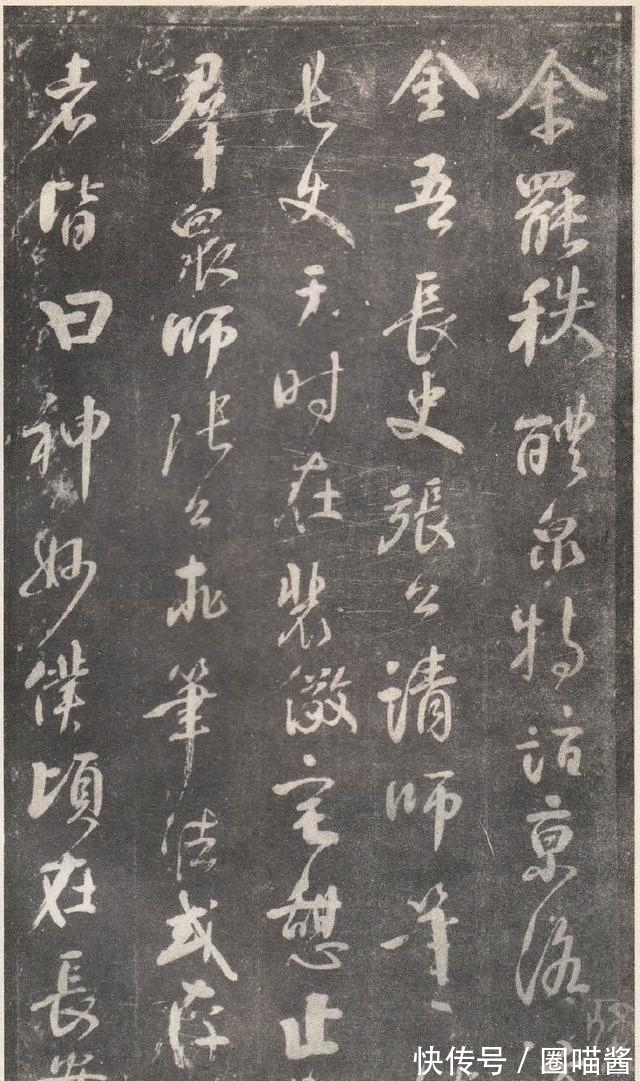 余罷秩醴泉特詣京洛訪
金吾長史張公請師筆
長史于時在裴儆宅憩止
群眾師張公求筆法或存
者皆曰神妙僕頃在長安
快传号 / 圈喵酱